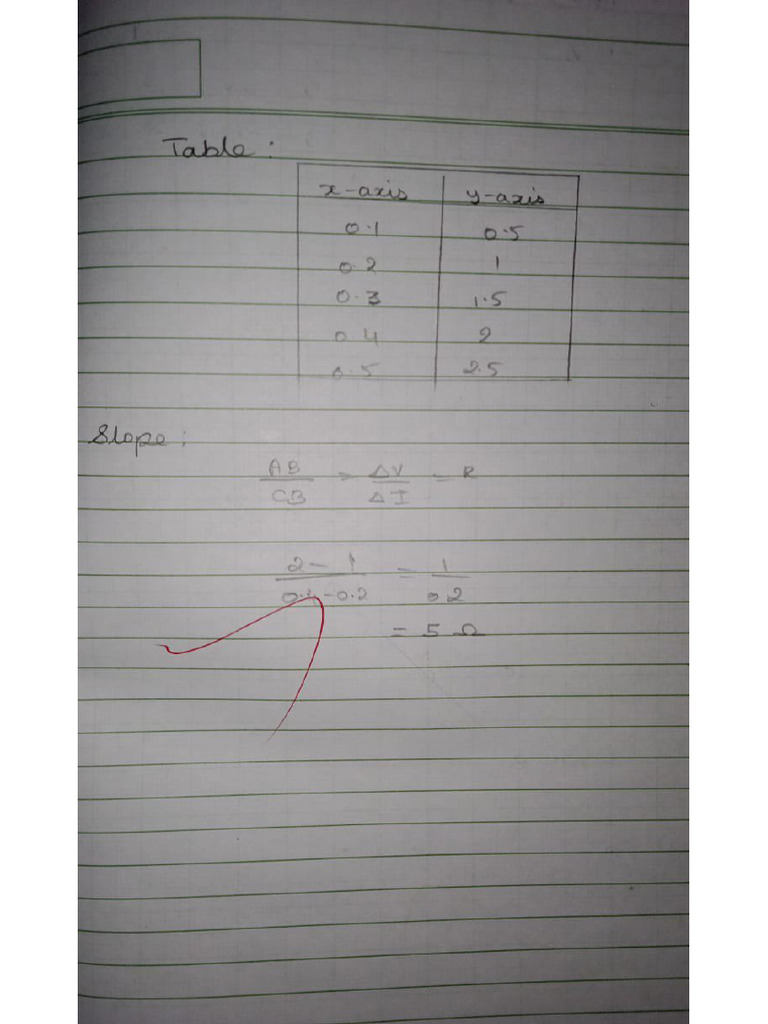 Table :
x-axis y-axis
0.1 0.5
0.2 1
0.3 1.5
0.4 2
0.5 2.5
Slope :
AB/CB = ΔV/ΔI = R
2 - 1/0.4-0.2 = 1/0.2
= 5 Ω